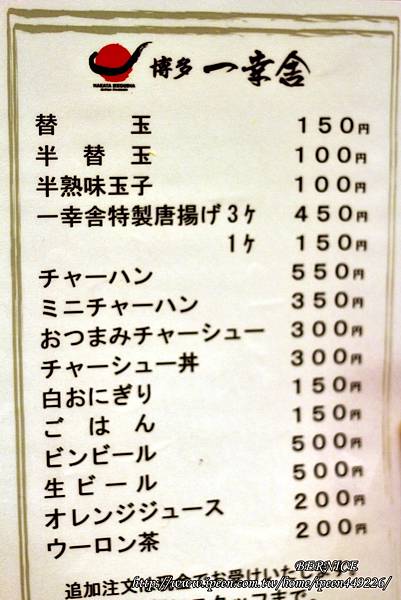 博多 一幸舎
HAKATA IKKOUSHA
替玉 150円
半替玉 100円
半熟味玉子 100円
一幸舎特製唐揚げ 3ヶ 450円
1ヶ 150円
チャーハン 550円
ミニチャーハン 350円
おつまみチャーシュー 300円
チャーシュー丼 300円
白おにぎり 150円
ごはん 150円
ビンビール 500円
生ビール 500円
オレンジジュース 200円
ウーロン茶 200円
BERNICE
追加注文は
お受けいたし
http://www.ipeen.com.tw/home/ipeen449226/
スタッフまで